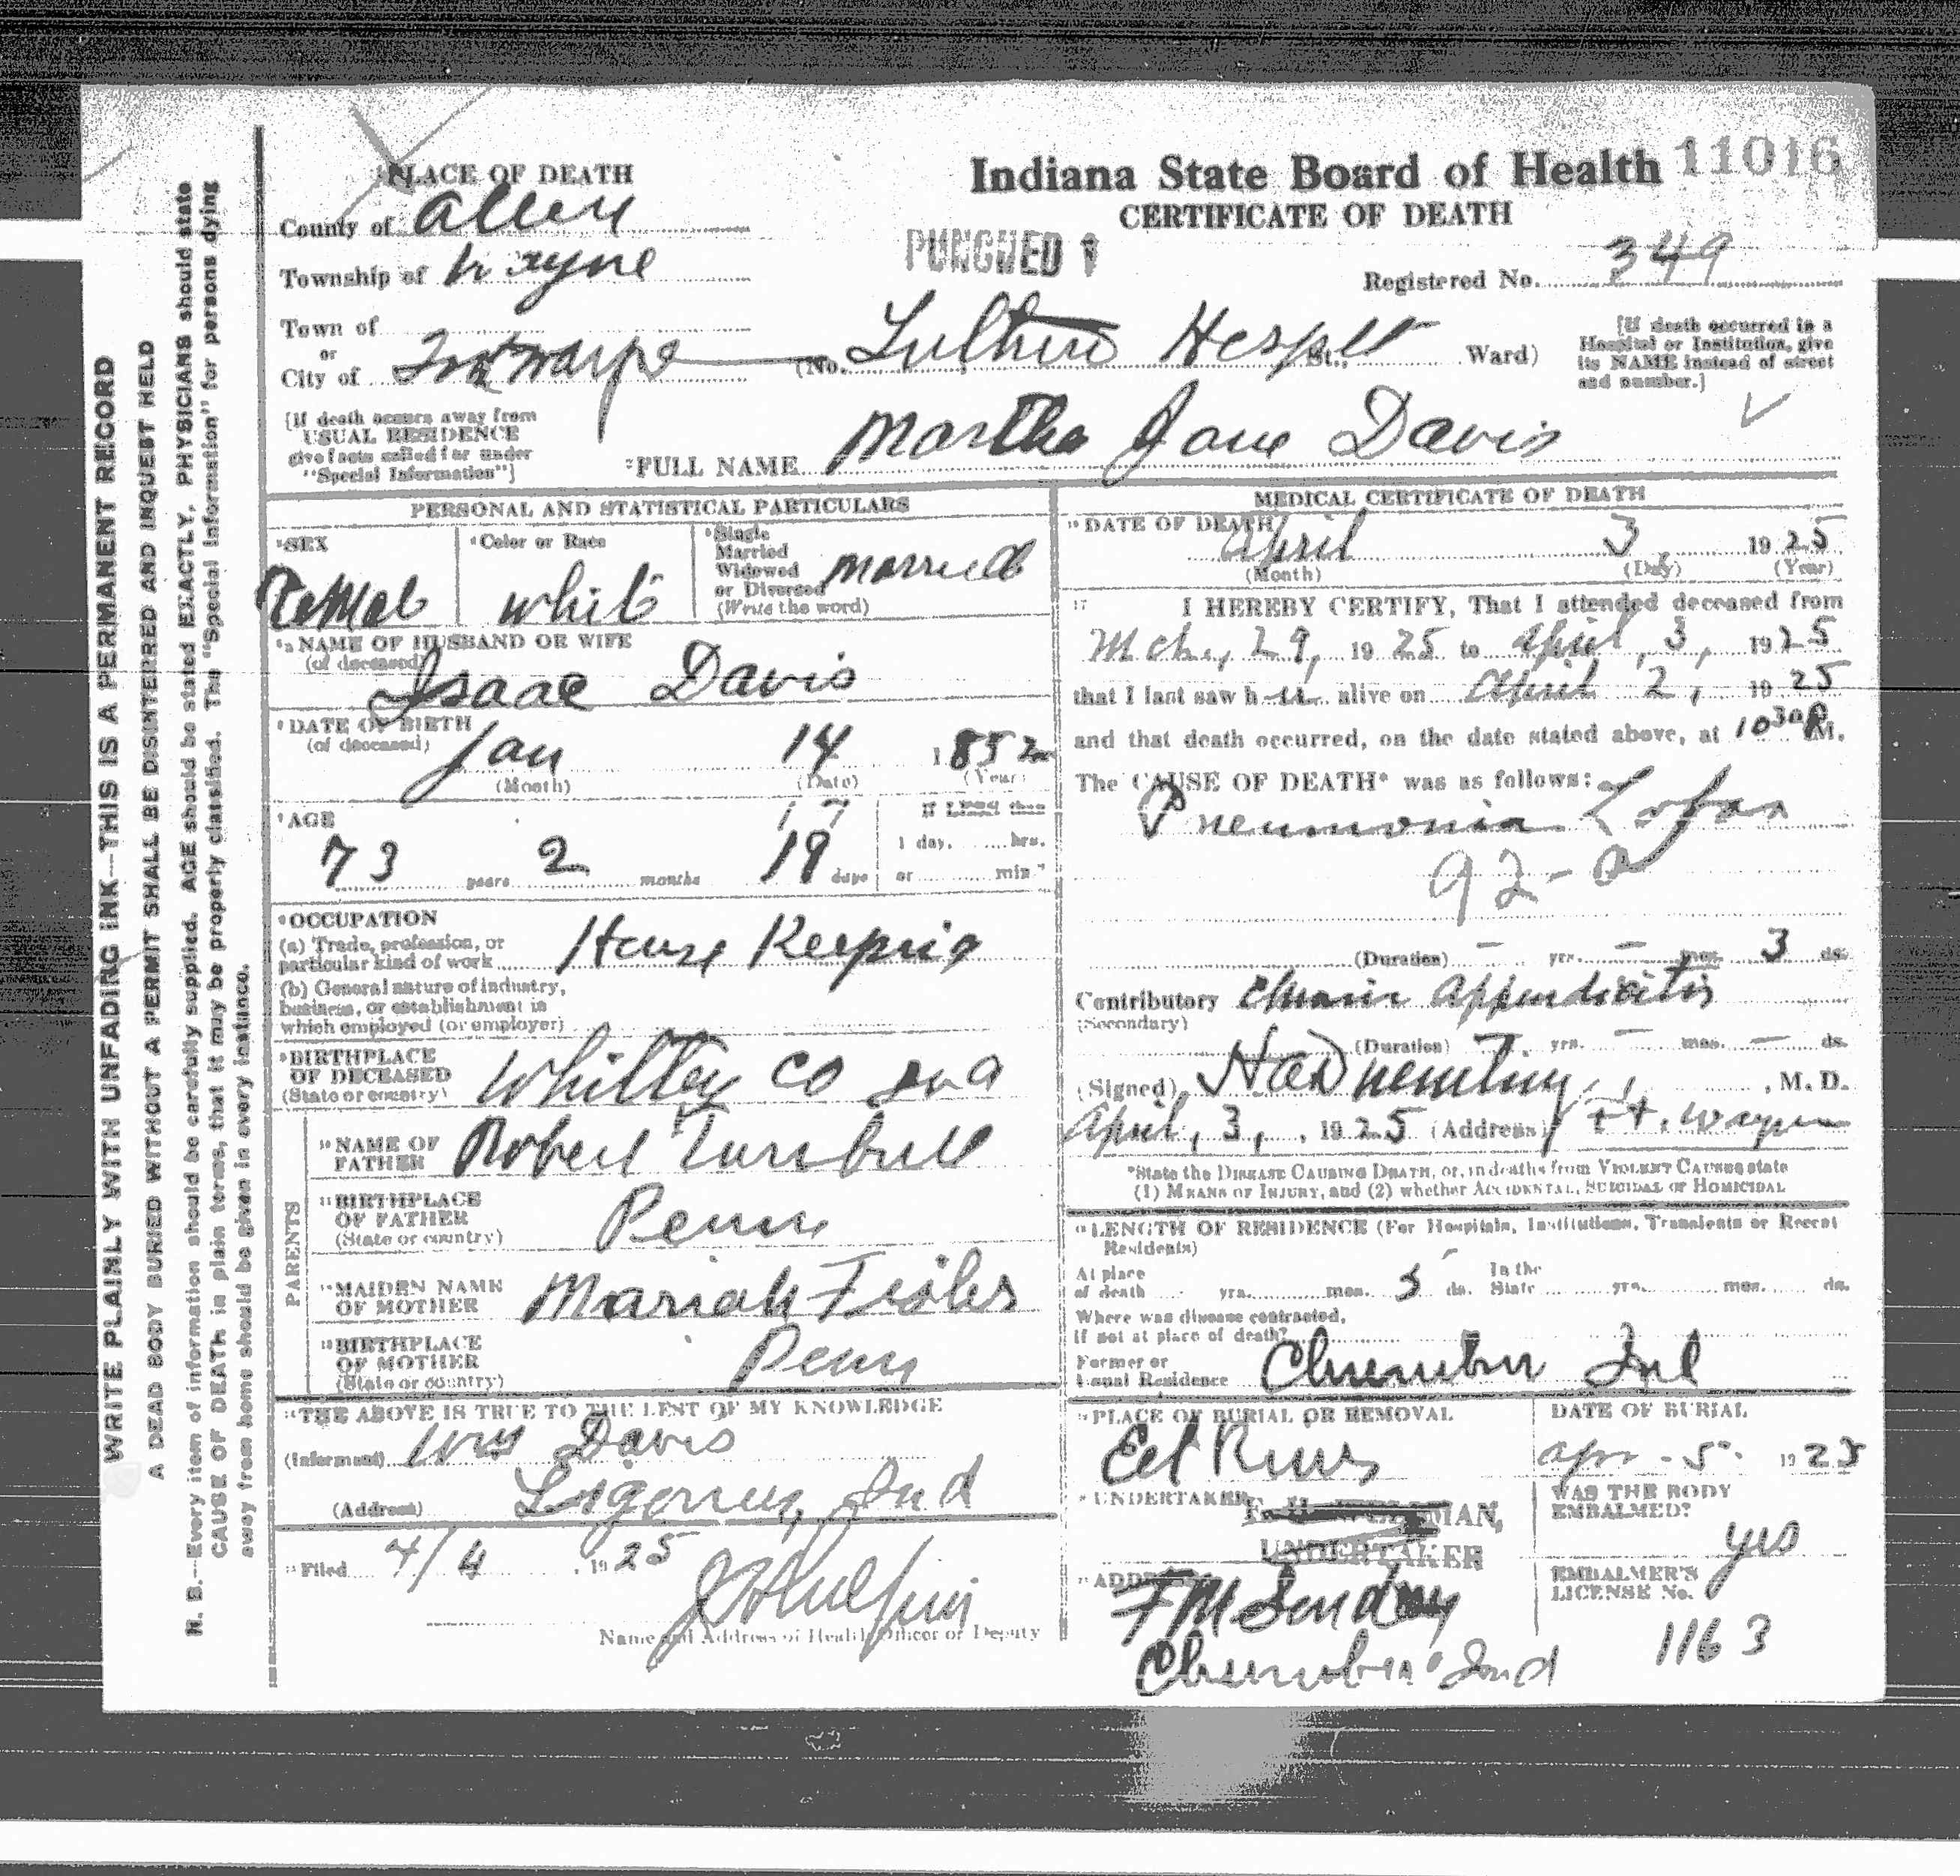 Indiana State Board of Health 11016
CERTIFICATE OF DEATH
PLACE OF DEATH
County of Allen
Township of Wayne
PUNCHED
Registered No. 349
Town of
or
City of Ft Wayne (No. Luthern Hospt St., Ward)
[If death occurred in a
Hospital or Institution, give
its NAME instead of street
and number.]
[If death occurs away from
USUAL RESIDENCE
give facts called for under
"Special Information"]
FULL NAME Martha Jane Davis
PERSONAL AND STATISTICAL PARTICULARS
SEX
Female
Color or Race
White
Single
Married
Widowed
or Divorced
(Write the word)
Married
NAME OF HUSBAND OR WIFE
(of deceased)
Isaac Davis
DATE OF BIRTH
(of deceased)
Jan 14 1852
(Month) (Date) (Year)
AGE
73 years 2 months 19 days
If Less than
1 day, hrs.
or min
OCCUPATION
(a) Trade, profession, or
particular kind of work House Keeping
(b) General nature of industry,
business, or establishment in
which employed (or employer)
BIRTHPLACE
OF DECEASED
(State or country)
Whitley Co Ind
PARENTS
NAME OF
FATHER
Robert Turnbull
BIRTHPLACE
OF FATHER
(State or country)
Penn
MAIDEN NAME
OF MOTHER
Mariah
BIRTHPLACE
OF MOTHER
(State or country)
Penn
THE ABOVE IS TRUE TO THE BEST OF MY KNOWLEDGE
(Informant) Wm Davis
(Address) Ligonier, Ind
Filed 4/4 1925
Name and Address of Health Officer or Deputy
MEDICAL CERTIFICATE OF DEATH
DATE OF DEATH
April 3, 1925
(Month) (Day) (Year)
17 I HEREBY CERTIFY, That I attended deceased from
Mch., 29, 1925 to April, 3, 1925
that I last saw h er alive on April 2, 1925
and that death occurred, on the date stated above, at 10 30 P M.
The CAUSE OF DEATH* was as follows:
Pneumonia Lobar
92-
(Duration) - yrs. - mos. 3 ds.
Contributory Chronic Appendicitis
(Secondary)
(Duration) yrs. - mos. - ds.
(Signed) , M. D.
April, 3, , 1925 (Address) Ft. Wayne
*State the DISEASE CAUSING DEATH, or, in deaths from VIOLENT CAUSES state
(1) MEANS OF INJURY, and (2) whether ACCIDENTAL, SUICIDAL or HOMICIDAL
LENGTH OF RESIDENCE (For Hospitals, Institutions, Transients or Recent
Residents)
At place
of death yrs. mos. 5 ds.
In the
State yrs. mos. ds.
Where was disease contracted,
if not at place of death?
Former or
Usual Residence Churubusco Ind
PLACE OF BURIAL OR REMOVAL
Eel River
DATE OF BURIAL
Apr - 5 - 1925
UNDERTAKER
UNDERTAKER
ADDRESS
Ind
WAS THE BODY
EMBALMED?
yes
EMBALMER'S
LICENSE No.
1163
WRITE PLAINLY WITH UNFADING INK--THIS IS A PERMANENT RECORD
A DEAD BODY BURIED WITHOUT A PERMIT SHALL BE DISINTERRED AND INQUEST HELD
N. B.--Every item of information should be carefully supplied. AGE should be stated EXACTLY. PHYSICIANS should state
CAUSE OF DEATH in plain terms, that it may be properly classified. The "Special Information" for persons dying
away from home should be given in every instance.